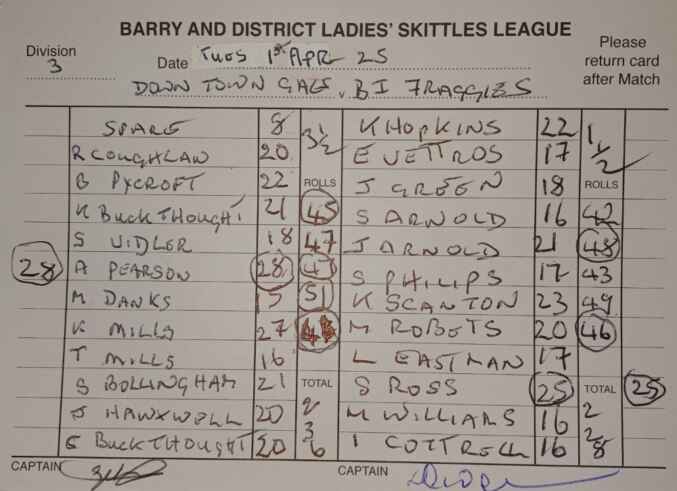 BARRY AND DISTRICT LADIES' SKITTLES LEAGUE
Division 3 Date TUES 1st APR 25 Please return card after Match
DOWN TOWN GALS v BI FRAGGLES
SPARE 8 3½ K HOPKINS 22 1½
R COUGHLAN 20 E VETTROS 17
B PYCROFT 22 ROLLS J GREEN 18 ROLLS
K BUCKTHOUGHT 21 45 S ARNOLD 16 42
S VIDLER 18 47 J ARNOLD 21 48
28 A PEARSON 28 47 S PHILIPS 17 43
M DANKS 15 51 K SCANTON 23 49
K MILLS 27 M ROBETS 20 46
T MILLS 16 L EASTMAN 17
S BOLLINGHAM 21 TOTAL S ROSS 25 TOTAL 25
J HAWXWELL 20 2 M WILLIAMS 16 2
S BUCKTHOUGHT 20 3 6 I COTTRELL 16 2 8
CAPTAIN CAPTAIN